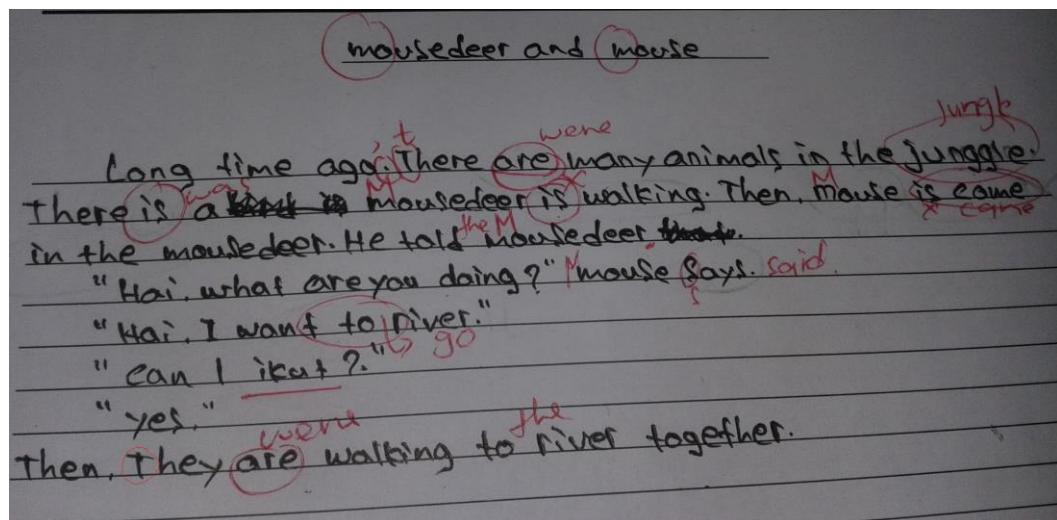 mousedeer and mouse
, t were jungle
Long time ago. There are many animals in the junggle.
was M x M
There is a mousedeer is walking. Then, mouse is came
the M x came
in the mousedeer. He told mousedeer
"Hai, what are you doing?" mouse says. said
s
"Hai, I want to river."
go
"can I ikut?"
"yes."
were the
Then, They are walking to river together.